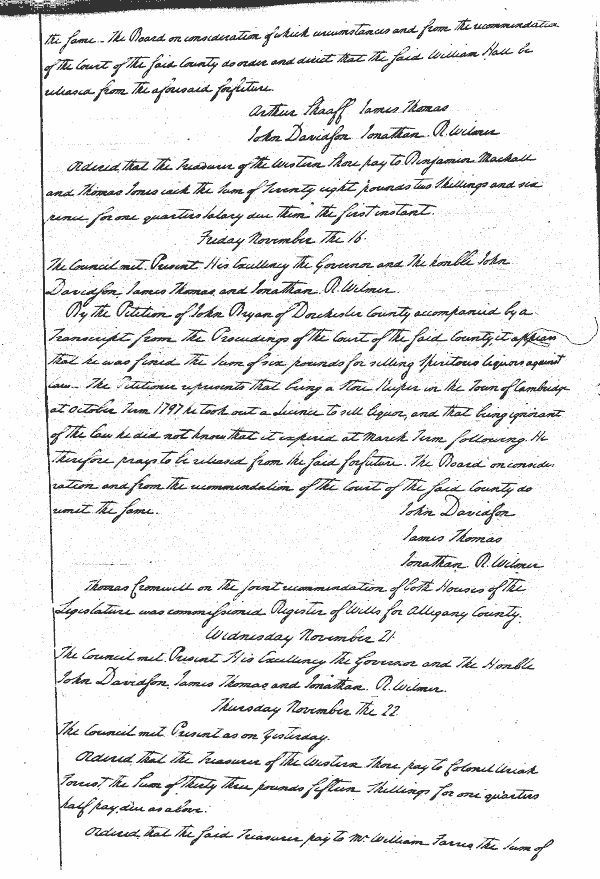 the same – The Board on consideration of which circumstances and from the recommendation
of the Court of the said County do order and direct that the said William Hall be
released from the aforesaid forfeiture.
Arthur Shaaff James Thomas
John Davidson Jonathan R. Wilmer
Ordered, that the Treasurer of the Western Shore pay to Benjamin Mackall
and Thomas Jones each the Sum of Twenty eight pounds two Shillings and six
pence for one quarters salary due them the first instant.
Friday November the 16.
The Council met. Present His Excellency the Governor and the honble John
Davidson, James Thomas, and Jonathan R. Wilmer.
By the Petition of John Bryan of Dorchester County accompanied by a
Transcript from the Proceedings of the Court of the said County, it appears
that he was fined the Sum of six pounds for selling Spiritous liquors against
law – The Petitioner represents that being a Store Keeper in the Town of Cambridge
at October Term 1797 he took out a Licence to sell liquor, and that being ignorant
of the law he did not know that it expired at March Term following. He
therefore prays to be released from the said forfeiture. The Board on conside-
ration and from the recommendation of the Court of the said County do
remit the same.
John Davidson
James Thomas
Jonathan R. Wilmer
Thomas Cromwell on the joint recommendation of both Houses of the
Legislature was commissioned Register of Wills for Allegany County.
Wednesday November 21
The Council met. Present His Excellency the Governor and The Honble
John Davidson, James Thomas, and Jonathan R. Wilmer.
Thursday November the 22
The Council met Present as on Yesterday.
Ordered, that the Treasurer of the Western Shore pay to Colonel Uriah
Forrest, the Sum of thirty three pounds fifteen Shillings for one quarters
half pay, due as above.
Ordered, that the said Treasurer pay to Mr. William the Sum of